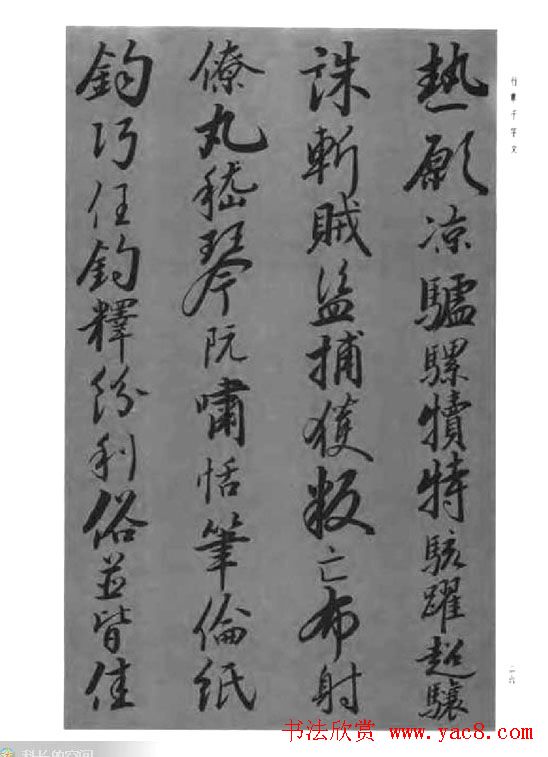 行書千字文
熱願涼驢騾犢特駭躍超驤
誅斬賊盜捕獲叛亡布射
僚丸嵇琴阮嘯恬筆倫紙
鈞巧任釣釋紛利俗並皆佳
二六
书法欣赏 www.yac8.com